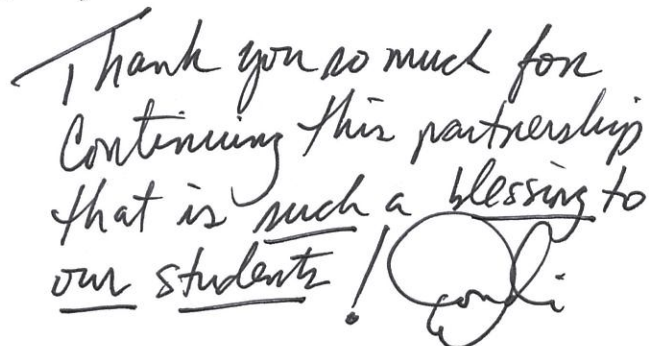 Thank you so much for
Continuing this partnership
that is such a blessing to
our students!